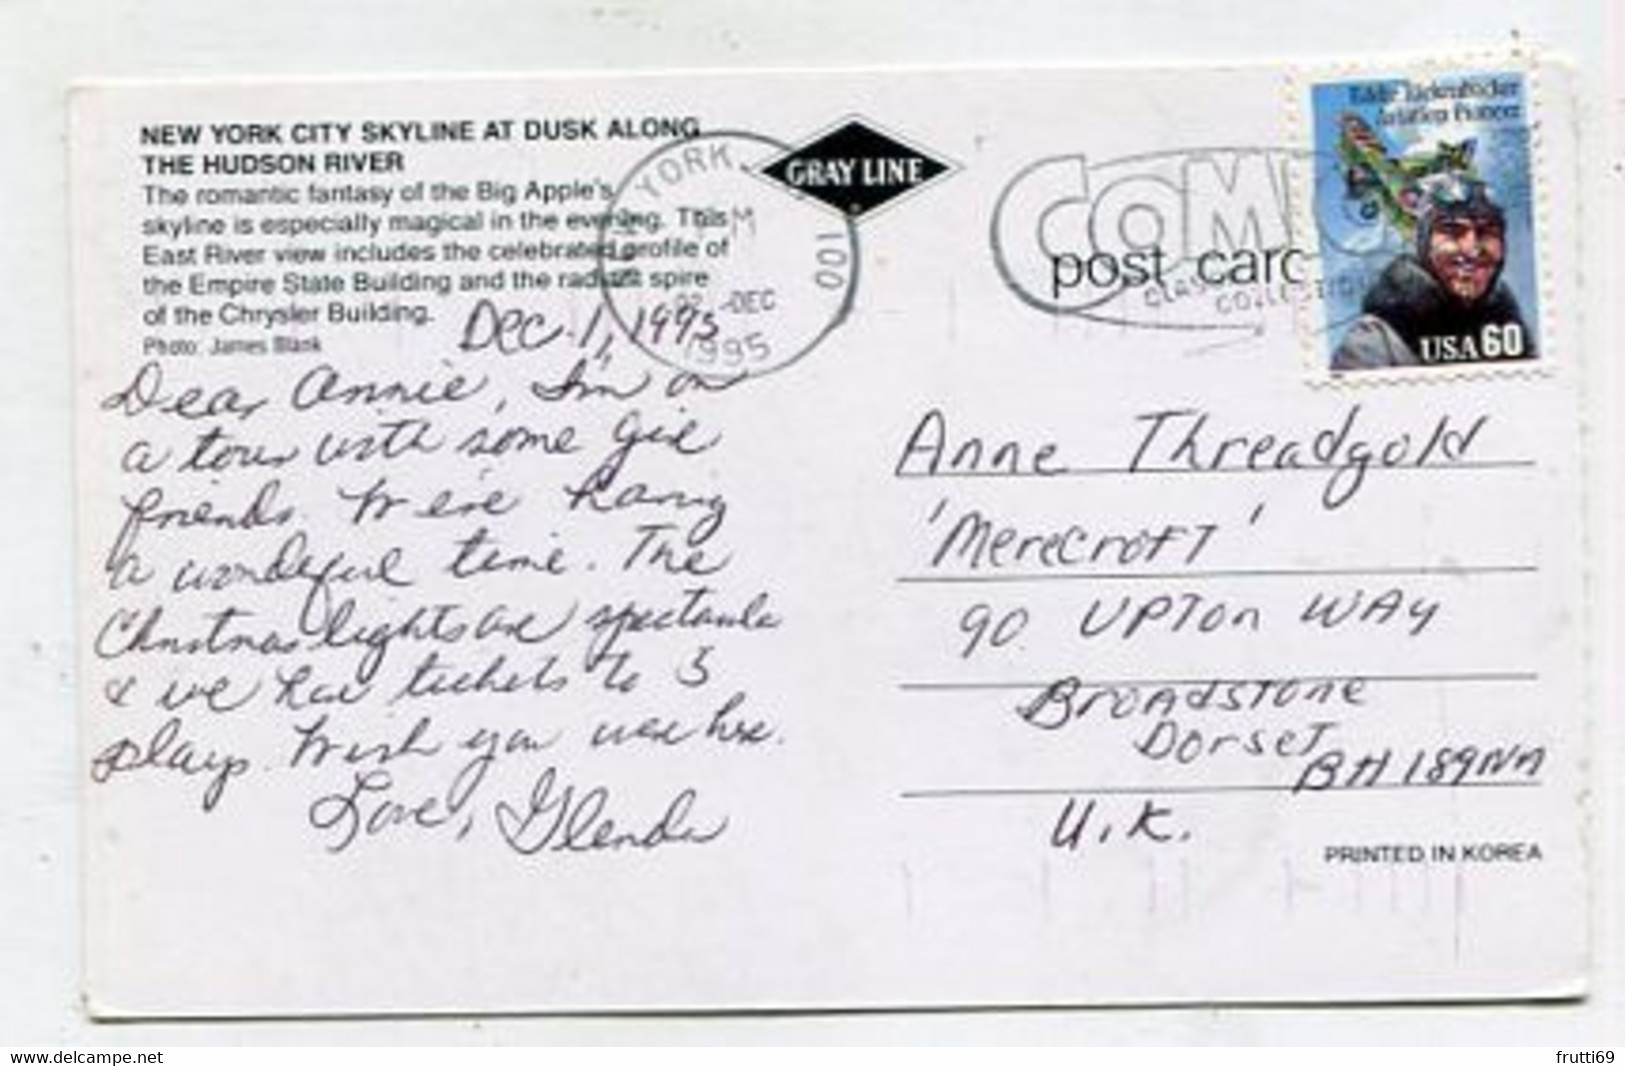 NEW YORK CITY SKYLINE AT DUSK ALONG
THE HUDSON RIVER
The romantic fantasy of the Big Apple's
skyline is especially magical in the evening. This
East River view includes the celebrated profile of
the Empire State Building and the radiant spire
of the Chrysler Building.
Photo: James Blank
Dec. 1, 1995
Dear Annie, I'm on
a tour with some girl
friends. We're having
a wonderful time. The
Christmas lights are spectacular
& we have tickets to 3
plays. Wish you were here.
Love, Glenda
YORK
100
02 DEC
1995
GRAY LINE
COMIC
CLASSIC
COLLECTION
post card
Eddie Rickenbacker
Aviation Pioneer
USA 60
Anne Threadgold
'Merecroft'
90 Upton Way
Broadstone
Dorset
BH 189NN
U.K.
PRINTED IN KOREA
www.delcampe.net
frutti69